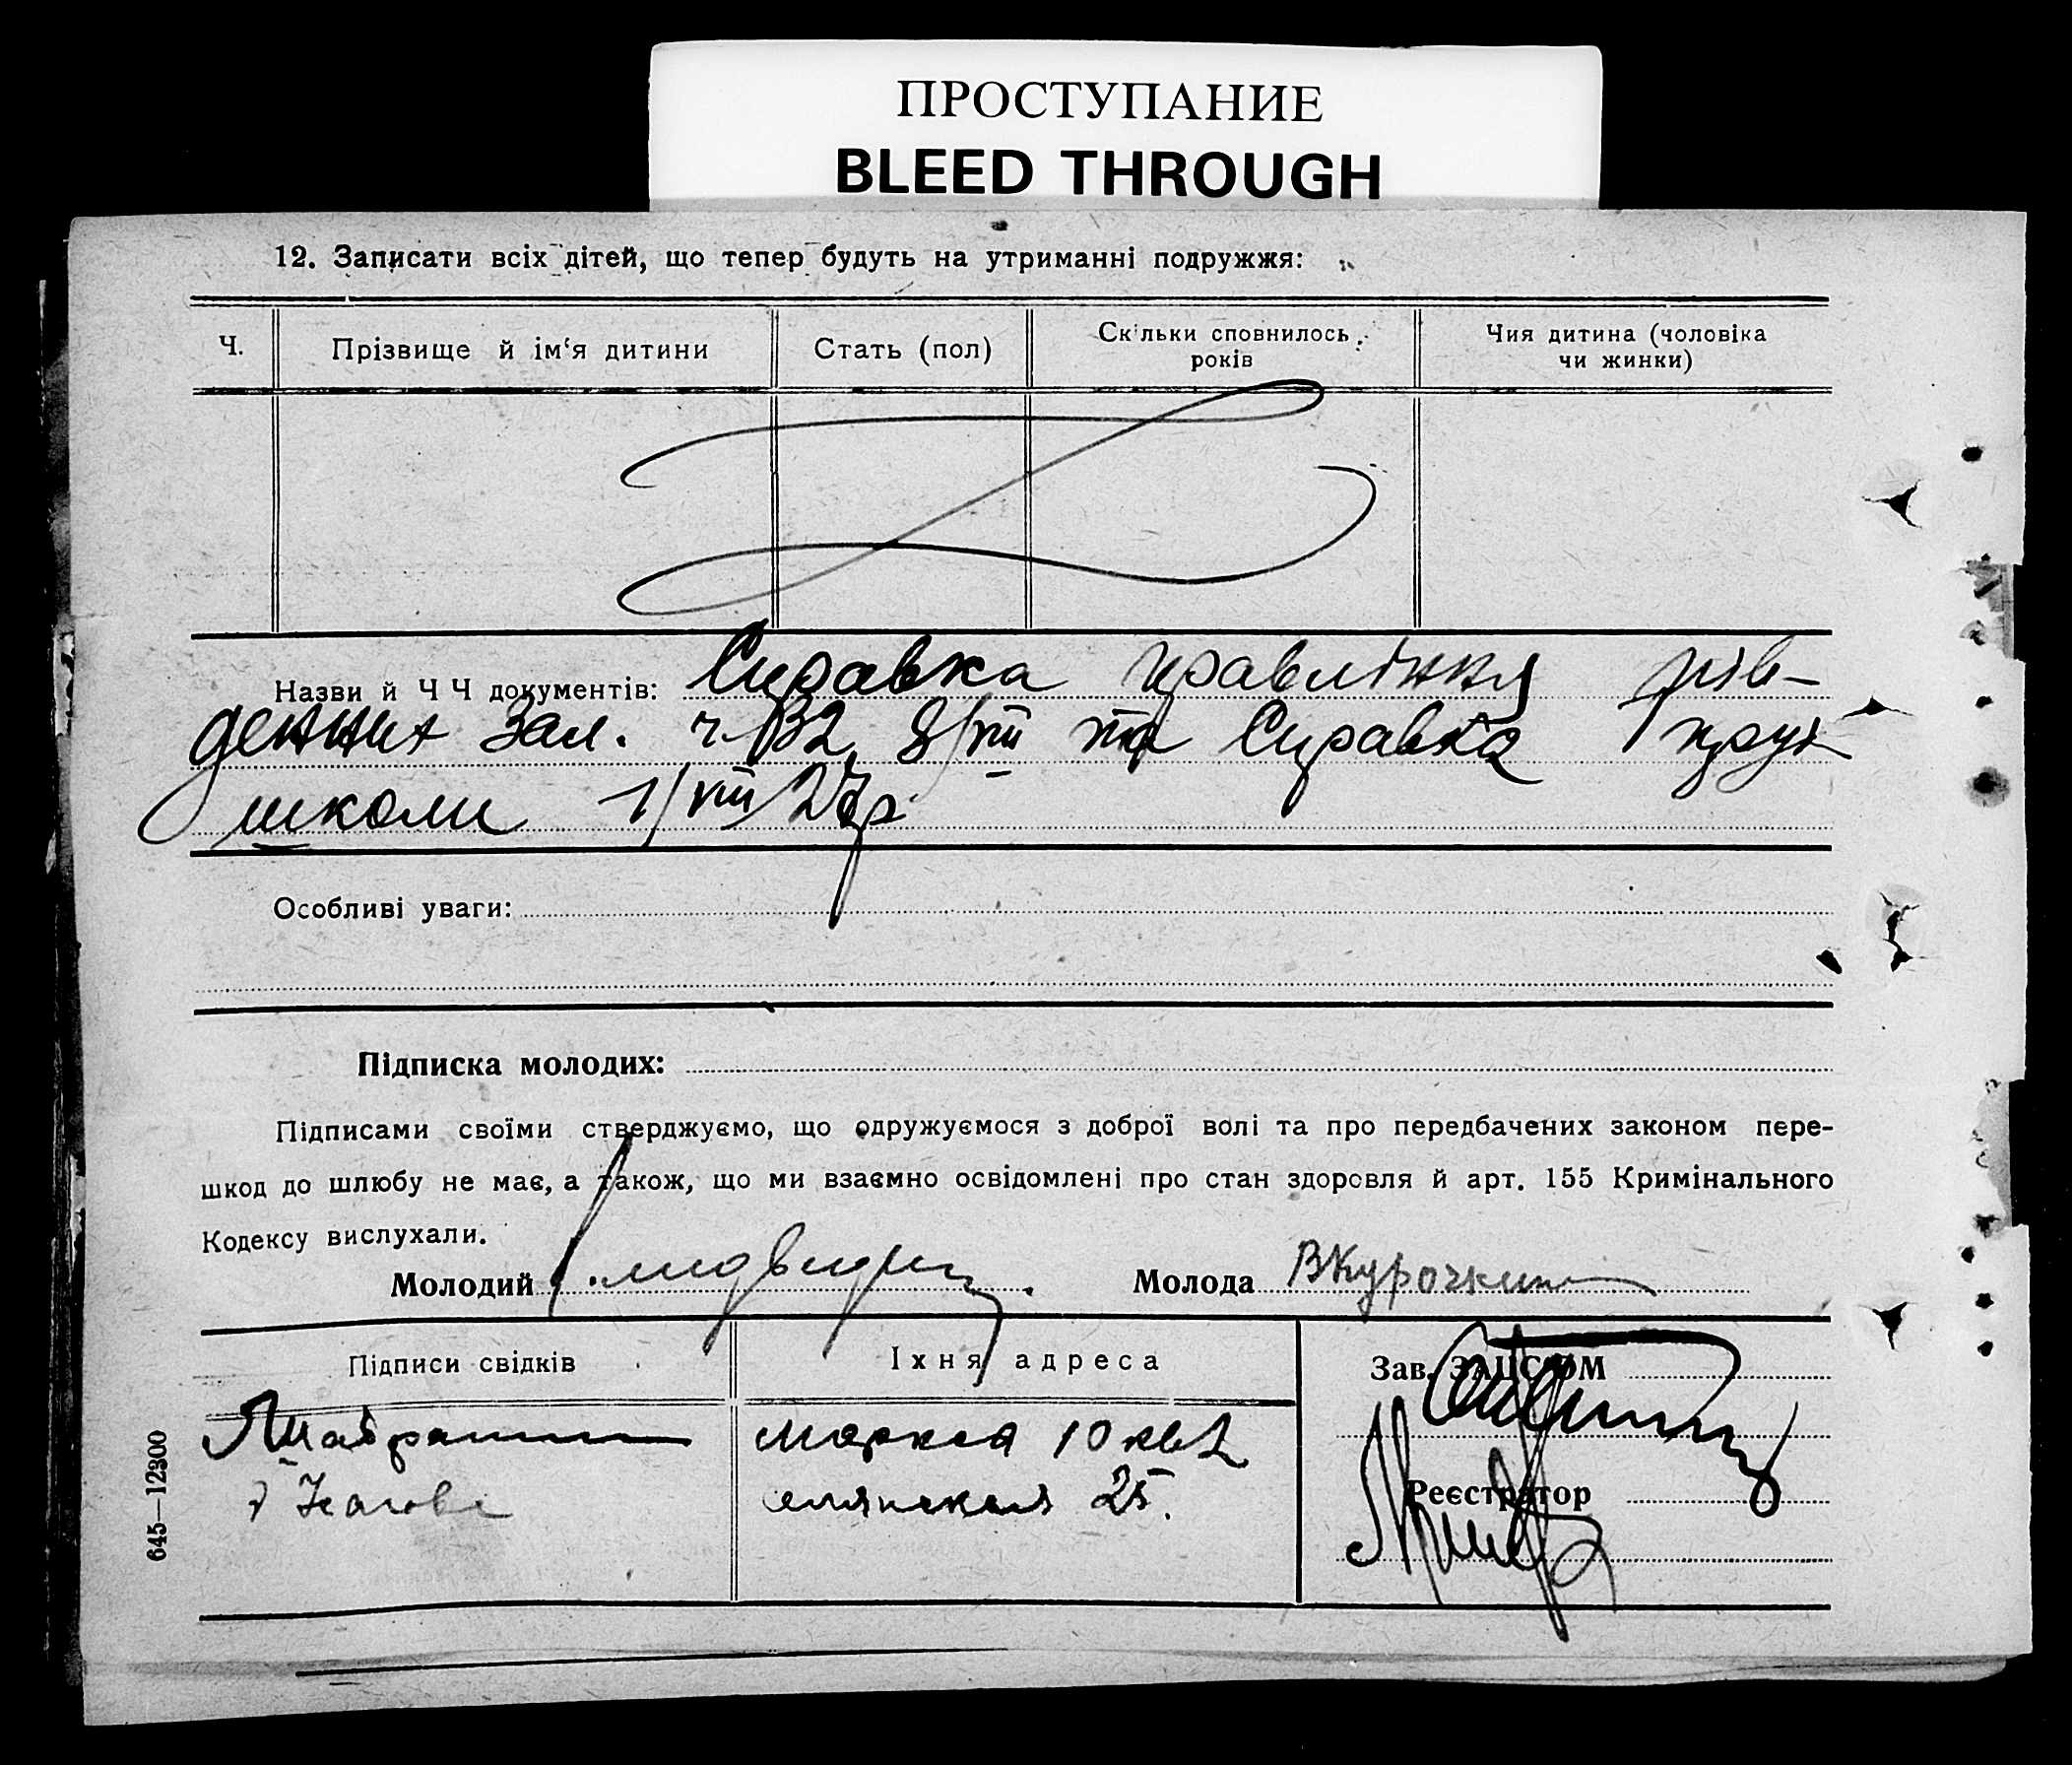 ПРОСТУПАНИЕ
BLEED THROUGH
12. Записати всіх дітей, що тепер будуть на утриманні подружжя:
Ч.
Прізвище й ім'я дитини
Стать (пол)
Скільки сповнилось
років
Чия дитина (чоловіка
чи жинки)
Назви й Ч Ч документів: Справка правління пів-
денних Зал. ч. 132 8/VIII та Справка
школи 1/VIII 27р
Особливі уваги:
Підписка молодих:
Підписами своїми стверджуємо, що одружуємося з доброї волі та про передбачених законом пере-
шкод до шлюбу не має, а також, що ми взаємно освідомлені про стан здоровля й арт. 155 Кримінального
Кодексу вислухали.
Молодий
Молода ВКурочкин
Підписи свідків
Їхня адреса
Зав. ЗАЦСОМ
10 кв 2
25.
Реєстратор
645—12300